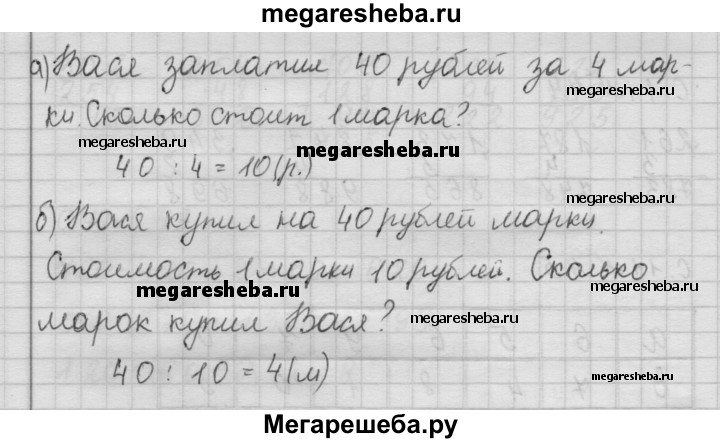 megaresheba.ru
а) Вася заплатил 40 рублей за 4 мар-
megaresheba.ru
ки. Сколько стоит 1 марка?
megaresheba.ru
megaresheba.ru
40 : 4 = 10(р.)
б) Вася купил на 40 рублей марки.
megaresheba.ru
Стоимость 1 марки 10 рублей. Сколько
megaresheba.ru
megaresheba.ru
марок купил Вася?
megaresheba.ru
40 : 10 = 4(м)
megaresheba.ru
Мегарешеба.ру